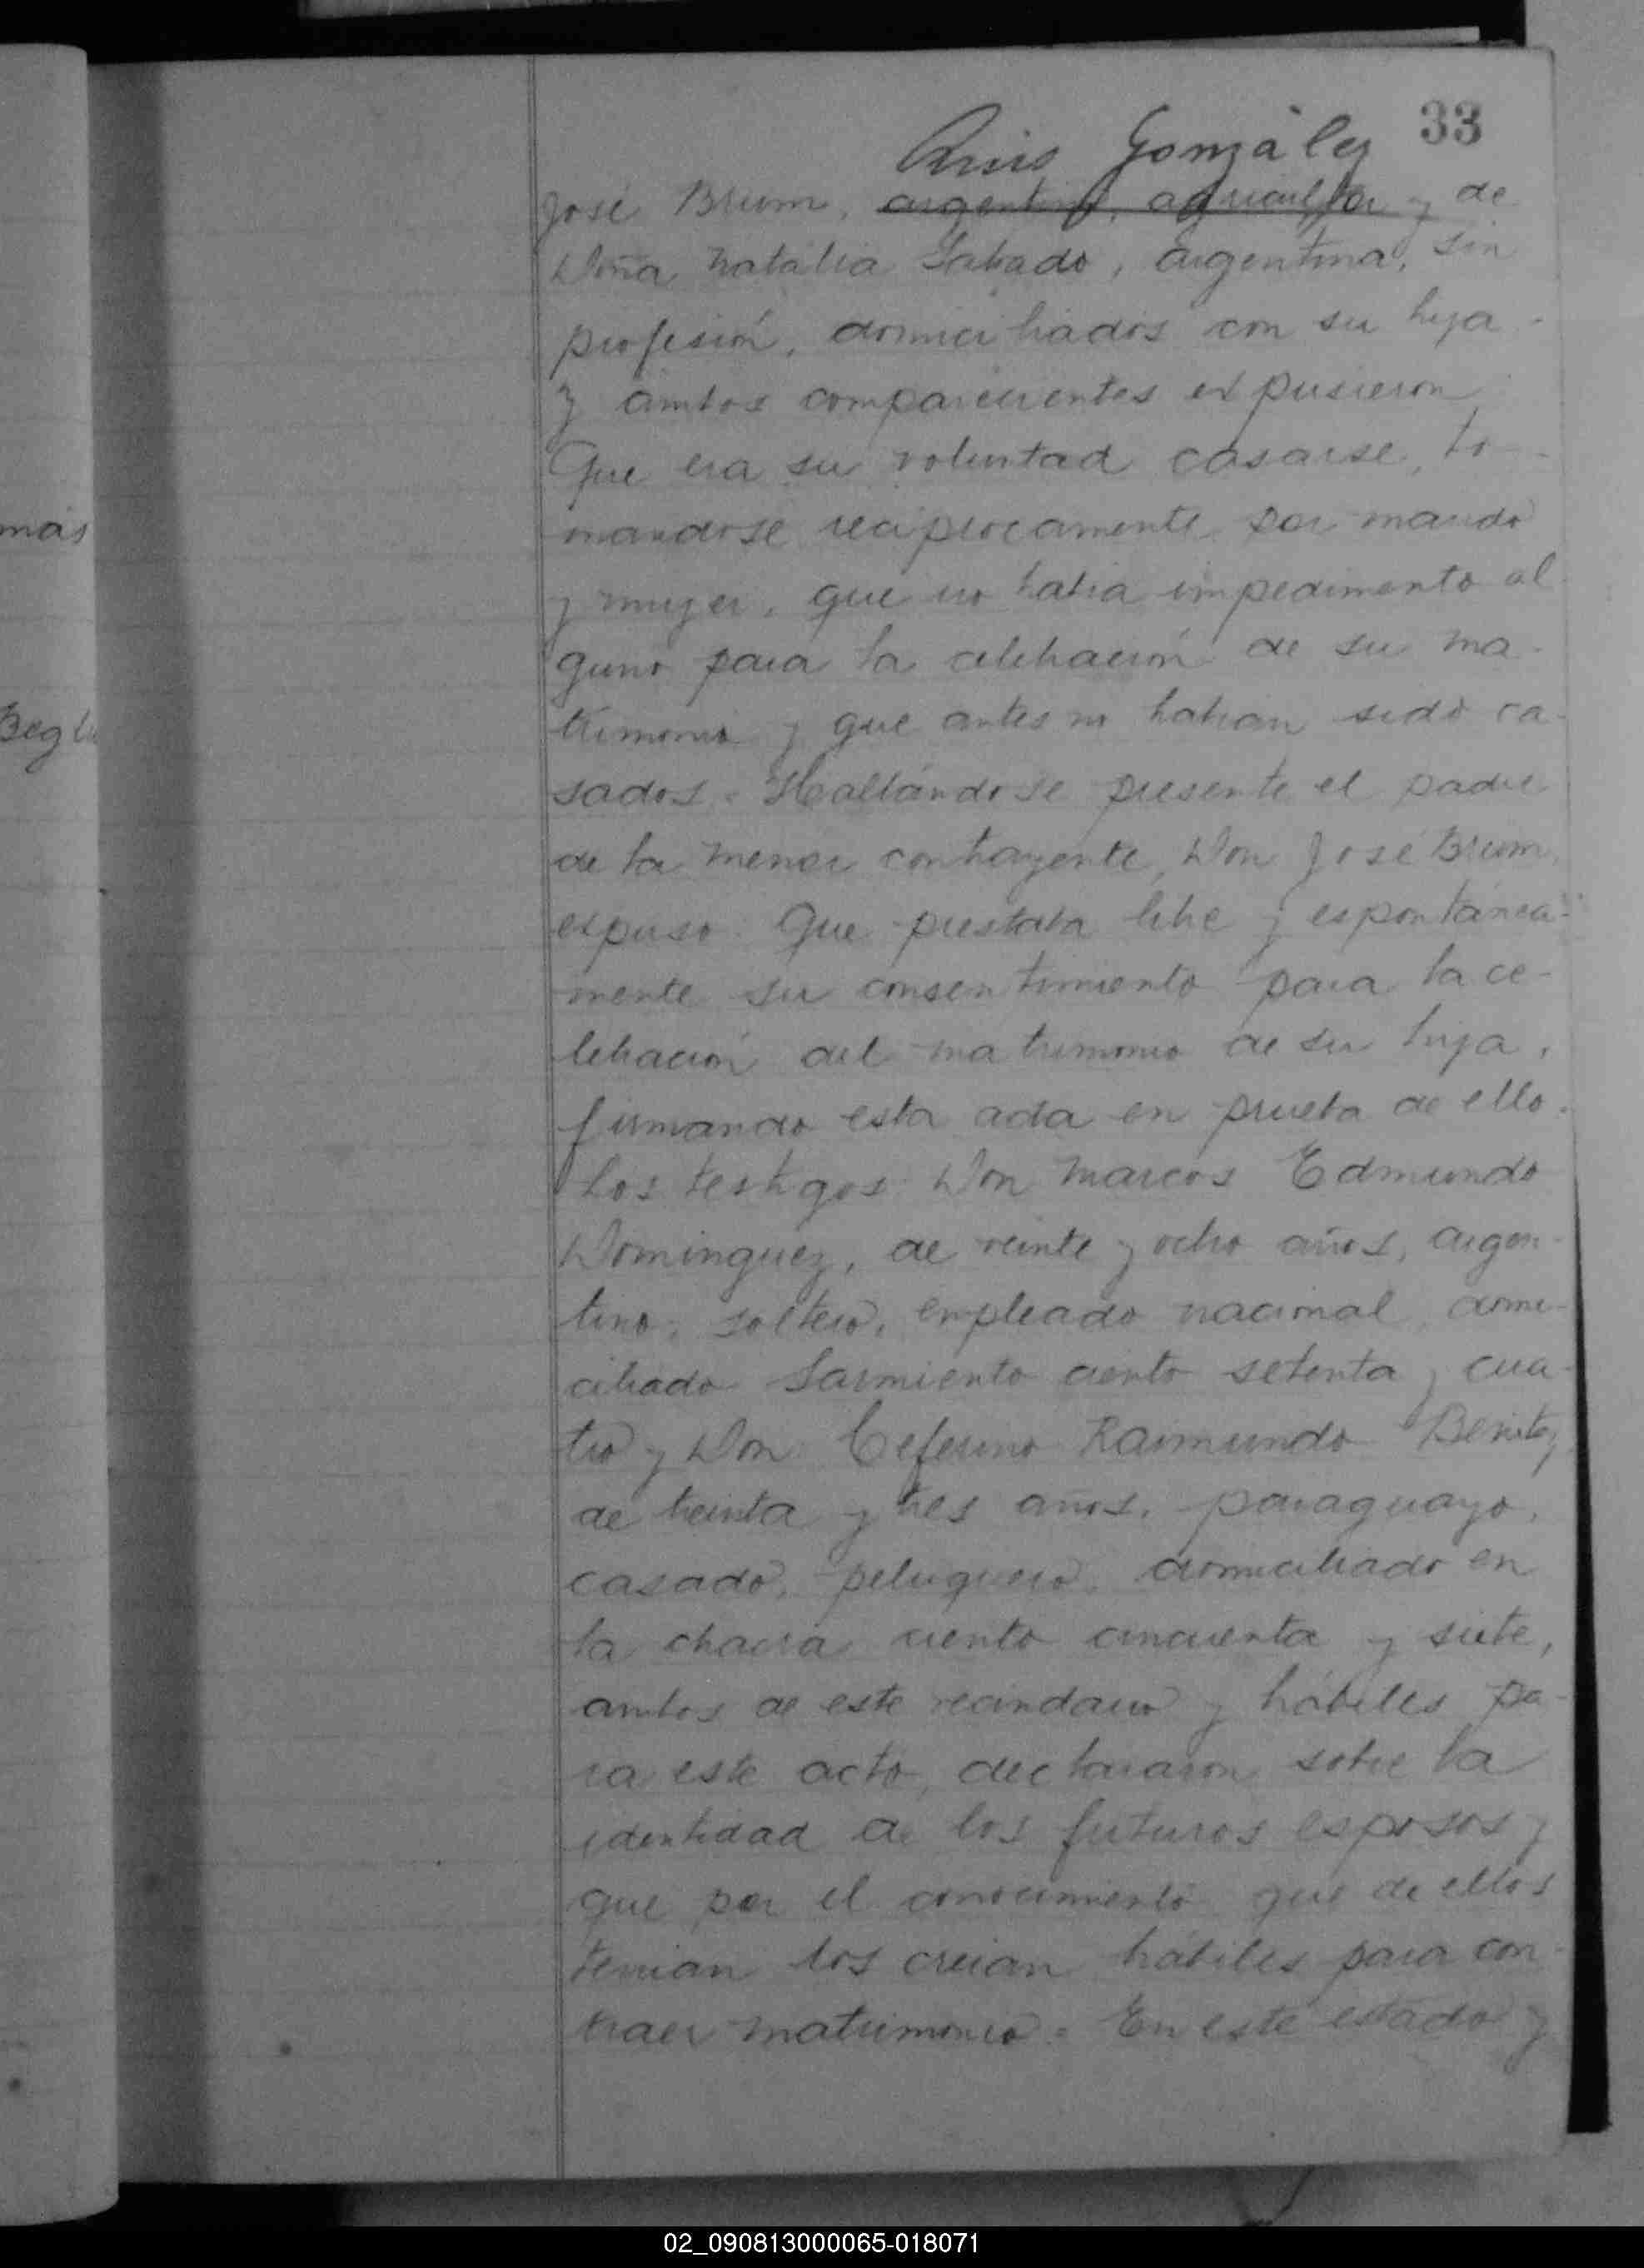 33
Luis González
José Brum, argentino, agricultor y de
Doña Natalia Sabado, argentina, sin
profesión, domiciliados con su hija.
Y ambos comparecientes expusieron
Que era su voluntad casarse, to-
mandose reciprocamente por marido
y mujer, que no habia impedimento al
guno para la celebración de su ma-
trimonio y que antes no habian sido ca-
sados. Hallándose presente el padre
de la menor contrayente, Don José Brum,
expuso: Que prestaba libre y espontánea-
mente su consentimiento para la ce-
lebración del matrimonio de su hija,
firmando esta acta en prueba de ello.
Los testigos Don Marcos Edmundo
Dominguez, de veinte y ocho años, argen-
tino, soltero, empleado nacional, domi-
ciliado Sarmiento ciento setenta y cua-
tro y Don Ceferino Raimundo Benitez,
de treinta y tres años, paraguayo,
casado, peluquero, domiciliado en
la chacra ciento cincuenta y siete,
ambos de este vecindario y hábiles pa-
ra este acto, declararon sobre la
identidad de los futuros esposos y
que por el conocimiento que de ellos
tenian los creian hábiles para con-
traer matrimonio. En este estado y
más
02_090813000065-018071